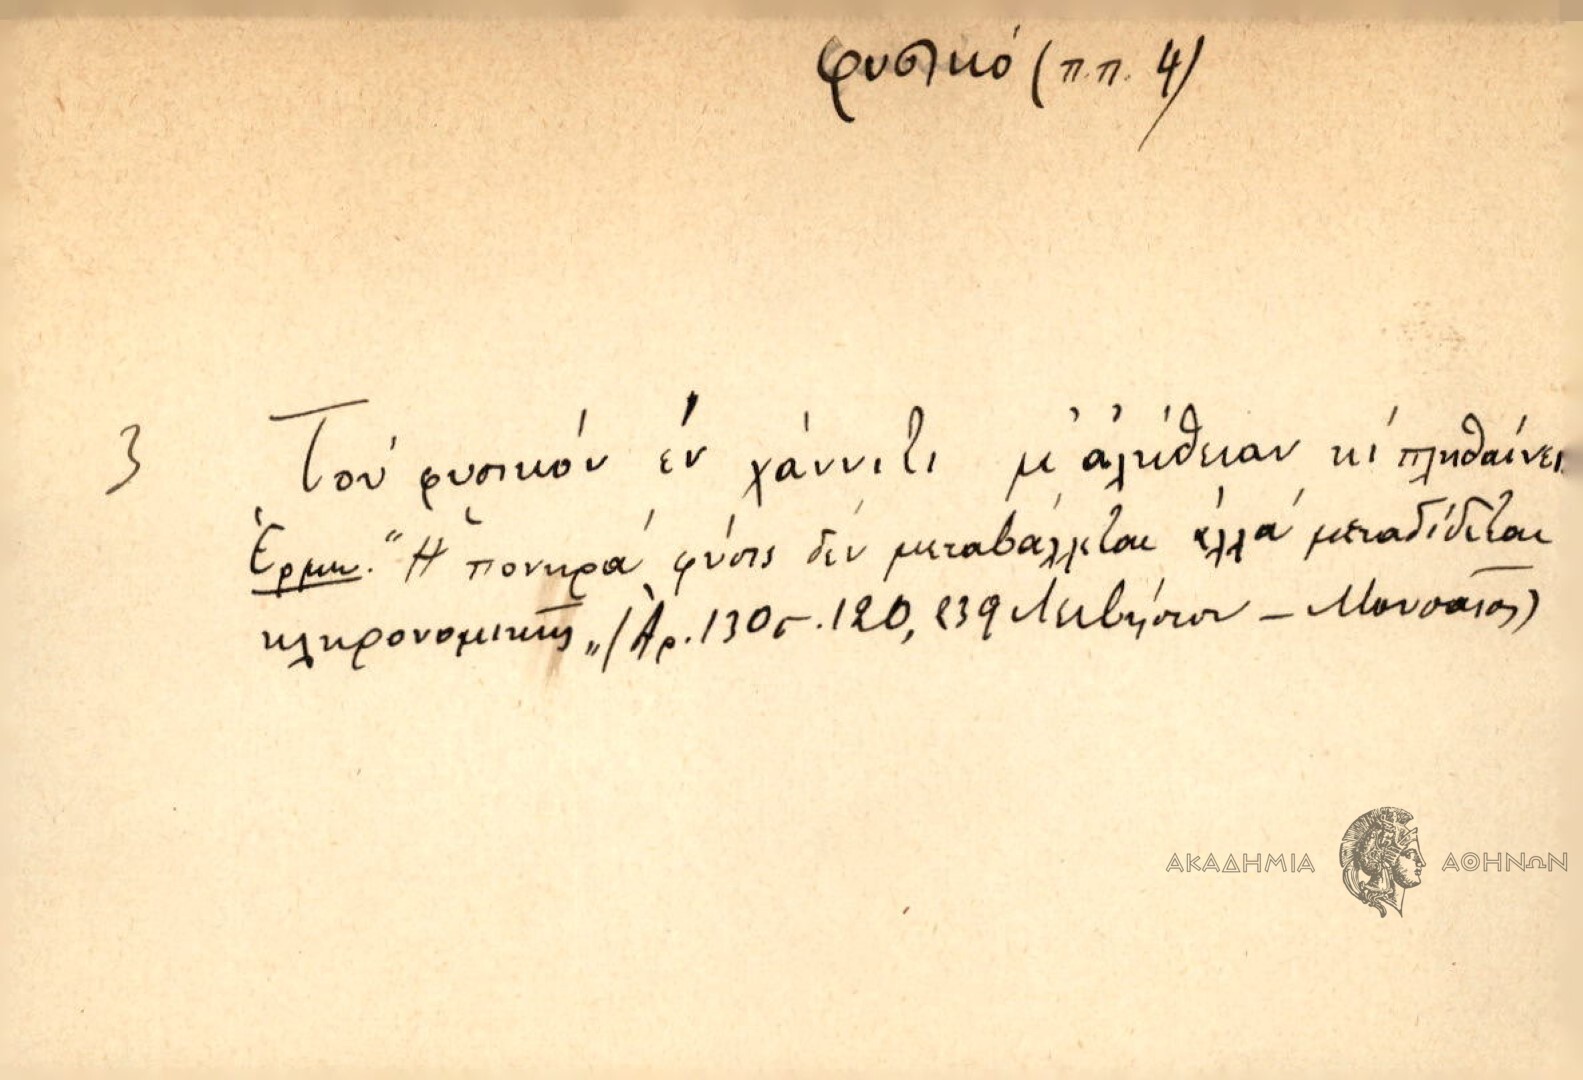 φυσικό (π.π. 4)
3 Τού φυσικόν έν χάννιτι μ' ἀλήθειαν κί πληθαίνει
Ἑρμη. "Ἡ πονηρά φύσις δέν μεταβάλλεται ἀλλά μεταδίδεται
κληρονομικῶς„ (Ἀρ. 130 σ. 120, 239 Λεβήσιον – Μουσαῖος)
ΑΚΑΔΗΜΙΑ ΑΘΗΝΩΝ